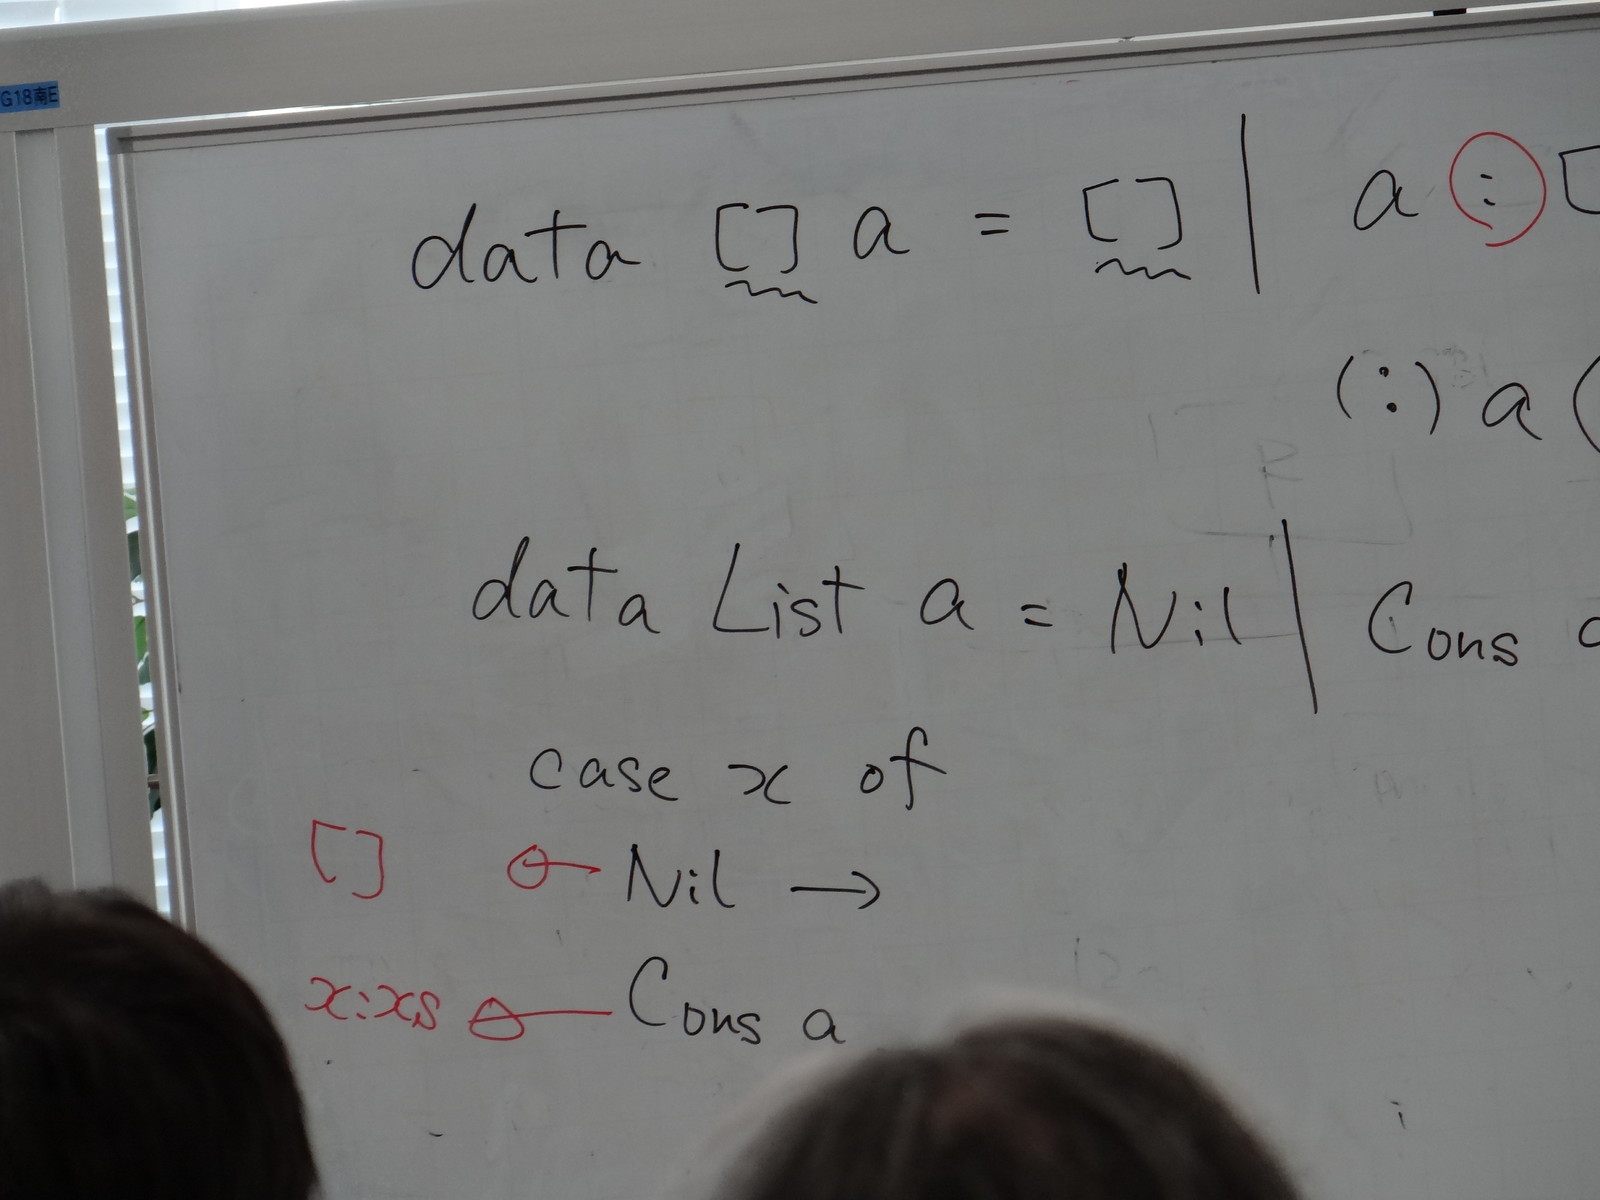 G18南E
data [] a = [] | a : [
(:) a (
data List a = Nil | Cons
case x of
[] ← Nil →
x:xs ← Cons a